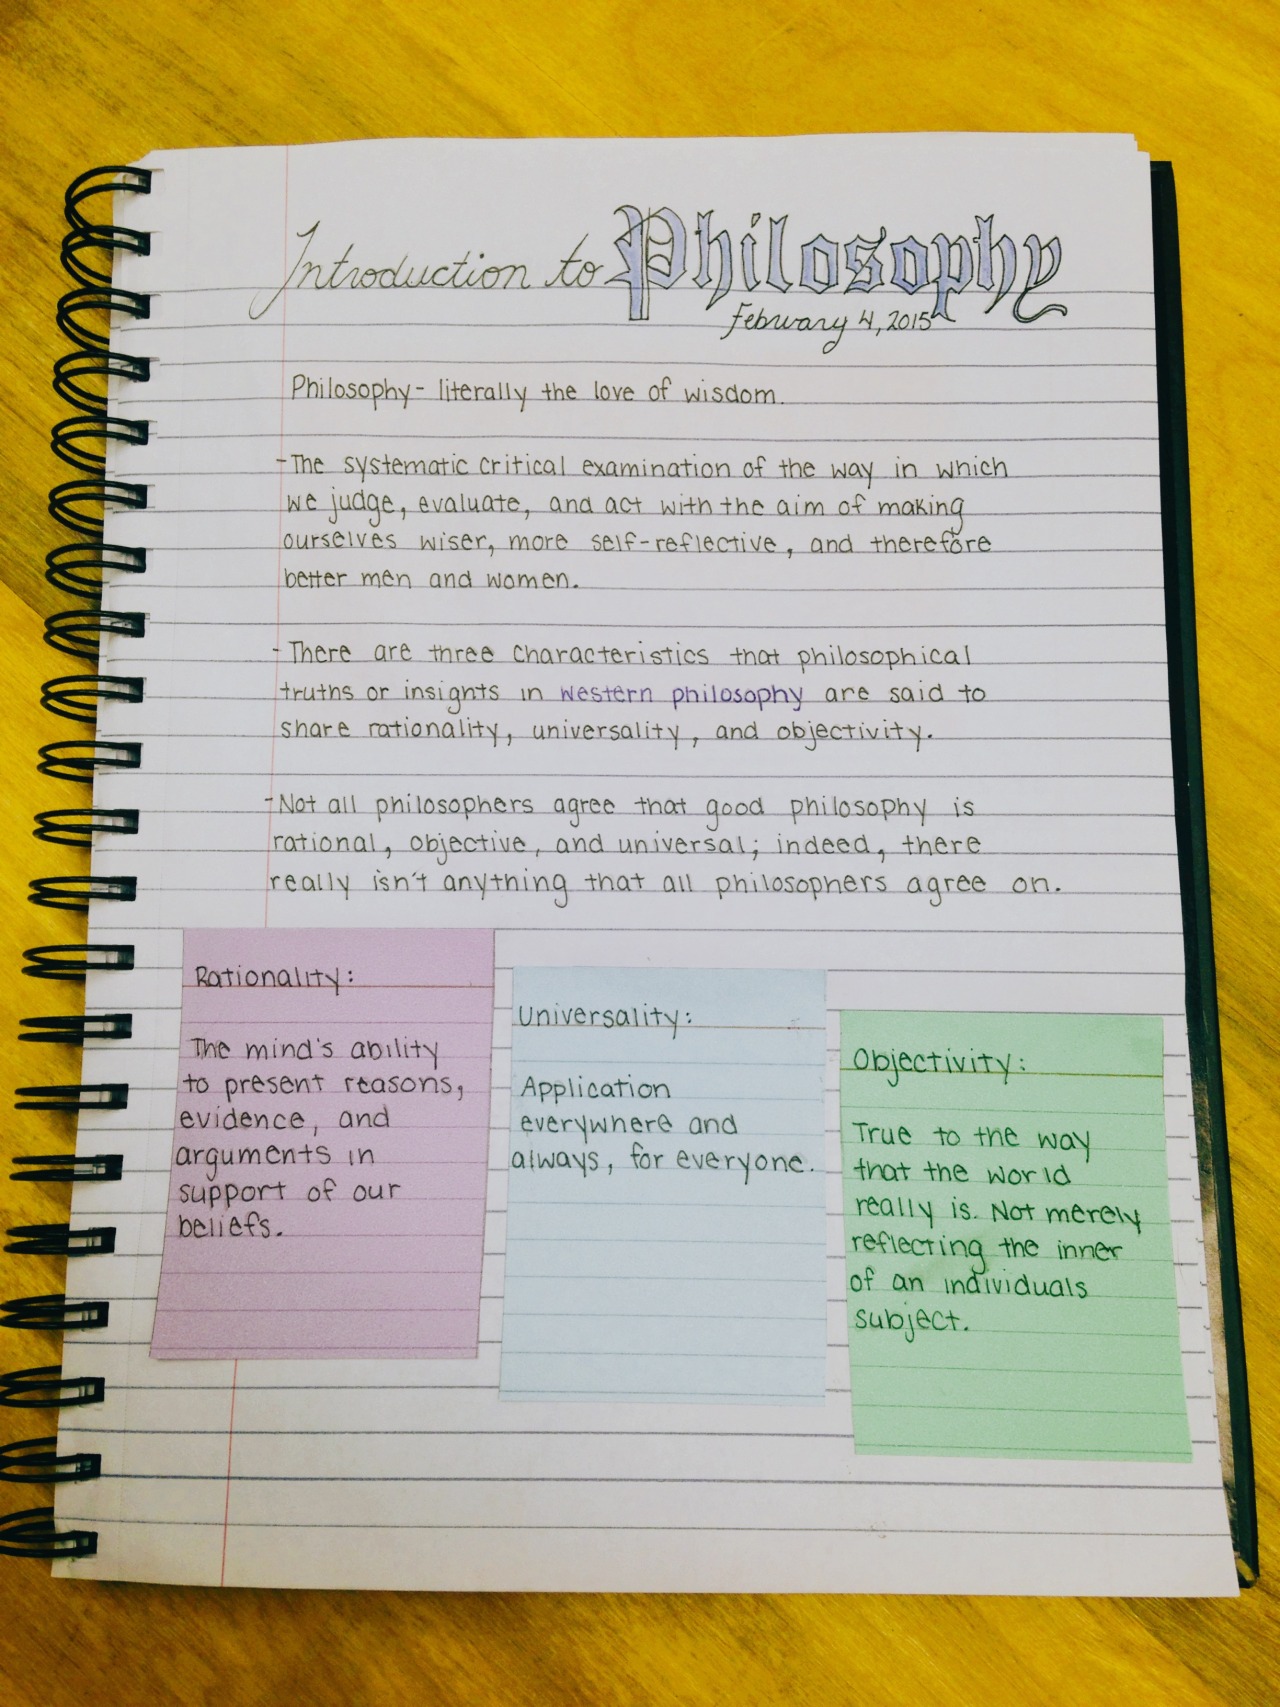 Introduction to Philosophy
February 4, 2015
Philosophy - literally the love of wisdom.
- The systematic critical examination of the way in which
we judge, evaluate, and act with the aim of making
ourselves wiser, more self-reflective, and therefore
better men and women.
- There are three characteristics that philosophical
truths or insights in western philosophy are said to
share rationality, universality, and objectivity.
- Not all philosophers agree that good philosophy is
rational, objective, and universal; indeed, there
really isn't anything that all philosophers agree on.
Rationality:
The mind's ability
to present reasons,
evidence, and
arguments in
support of our
beliefs.
Universality:
Application
everywhere and
always, for everyone.
Objectivity:
True to the way
that the world
really is. Not merely
reflecting the inner
of an individuals
subject.